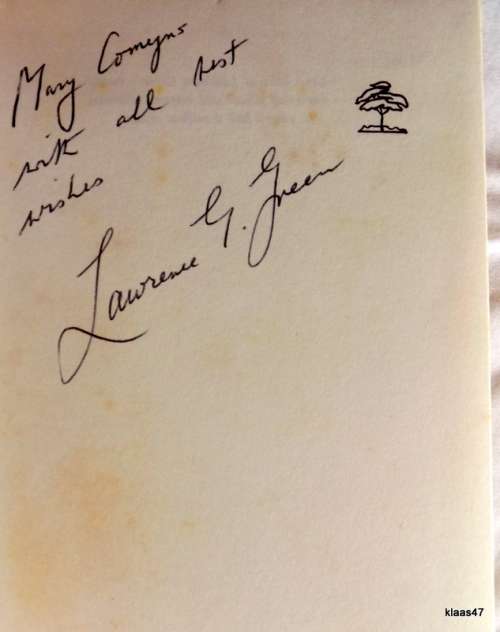 Mary Comyns
with all best
wishes
Lawrence G. Green
klaas47